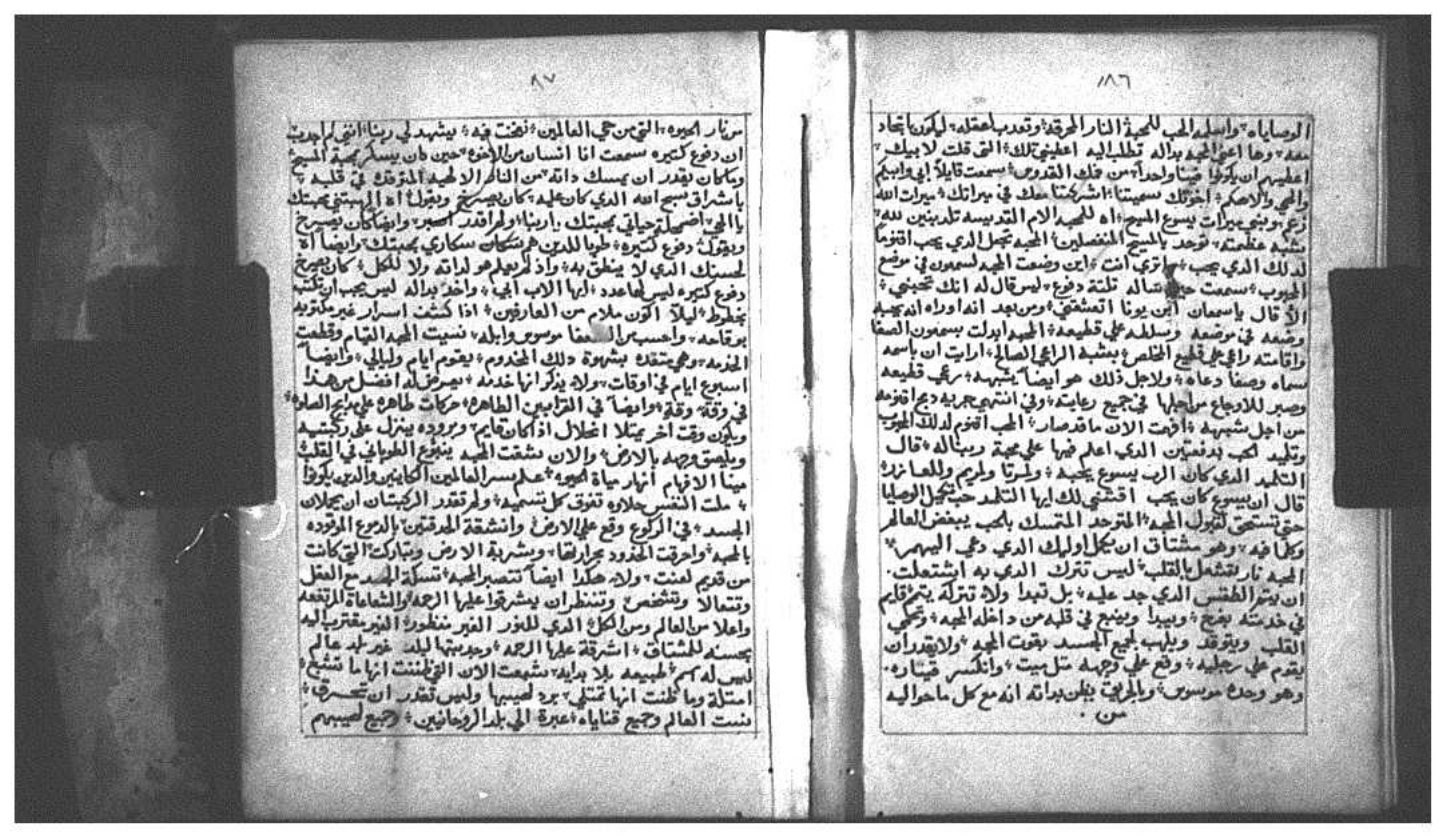 ١٨٦
الوصاياه واسلمه الحب للمحبة النار المحرقه وتعدب بعقله ليكون باتحاد
معه وها اعني المحبه بداله تطلب اليه اعطيني تلك التي قلت لابيك
اعطيهم ان يكونوا فينا واحداً من فمك القدوس سمعت قايلاً ابي وابيكم
والهي والاهكم اخوتك سميتنا اشركتنا معك في ميراتك ميرات الله
وبني ميرات يسوع المسيح اه للمحبه الام القديسه تلد بنين لله
بشبه عظمته توحد بالمسيح المنفصلين المحبه تجعل الدي يحب اقنوماً
لدلك الدي يحب ماتري انت اين وضعت المحبه لسمعون في موضع
المحبوب سمعت حين ساله تلتة دفوع ليس قال له انك تحبني
الا قال ياسمعان ابن يونا اتعشقني ومن بعد انه اوراه انه يحبه
وضعه في موضعه وسلطه علي قطيعه المحبه ابدلت بسمعون الصفا
واقامته راعي علي قطيع المخلص بشبه الراعي الصالح ارايت ان باسمه
سماه وصفا دعاه ولاجل ذلك هو ايضاً يشبهه رعي قطيعه
وصبر للاوجاع من اجلها في جميع رعايته وفي انتهي جريه دبح اقنومه
من اجل شبهه افهمت الان ماقد صار المحب اقنوم لدلك المحبوب
وتلميد احب بدفعتين الدي اعلم فيها علي محبة ربنا له قال
التلميد الدي كان الرب يسوع يحبه ولمرتا ولمريم وللعازره
قال ان يسوع كان يحب اقتني لك ايها التلميد حب تكمل الوصايا
حتي تستحق لقبول المحبه المتوحد المتمسك بالحب يبغض العالم
وكلما فيه وهو مشتاق ان يكمل اوليك الدي دعي اليهم
المحبه نار تشتعل بالقلب ليس تترك الدي به اشتعلت
ان يتم الطقس الدي جد عليه بل تبدا ولا تتركه يتم قايم
في خدمته يفرح ويبدا وينبع في قلبه من داخله المحبه وتحمي
القلب ويتوقد ويلهب لجميع الجسد بقوت المحبه ولا يقدر ان
يقوم علي رجليه وقع علي وجهه متل ميت وانكسر قيتاره
وهو وحده موسوس وبالحريق يظن بداته انه مع كل ماحواليه
من
٨٧
من نار الحيوه التي من حي العالمين نفخت فيه يشهد لي ربنا انني لم اجدب
ان دفوع كتيره سمعت انا انسان من الاخوه حين كان يسكر بمحبة المسيح
وماكان يقدر ان يمسك داته من النار الالهيه المتوقده في قلبه
باشراق تسبح الله الدي كان عليه كان يصرخ ويقول اه الهبتني محبتك
ياالهي اضمحلت حياتي بمحبتك ياربنا ولم اقدر اصبر وايضاً كان يصرخ
ويقول دفوع كتيره طوبا للدين هم سكارى بمحبتك وايضاً اه
لحسنك الدي لا ينطق به واذ لم يعلم هو لداته ولا للكل كان يصرخ
دفوع كتيره ليس لها عدد ايها الاب ابي واخد بداله ليس يجب ان تكتب
بخطوط ليلاً اكون ملام من العارفين اذا كشفت اسرار غير مكتوبه
بوقاحه واحسب من موسوس وابله نسيت المحبه القيام وقطعت
الخدمه وهي متقده بشهوة دلك المخدوم يقوم ايام وليالي وايضاً
اسبوع ايام في اوقات ولا يذكر انها خدمه يعرض له افضل من هذا
في وقت وقت وايضاً في القرابين الطاهره حركات طاهره علي مدابح
ويكون وقت اخر يمتلا انحلال اذا كان قايم وبروده ينزل علي ركبتيه
ويلصق وجهه بالارض والان شقت المحبه ينبوع الطوباني في القلب
مينا الافهام انهار مياة الحيوه علم بسر العالمين الكاينين والدين يكونوا
ملت النفس حلاوه تفوق كل تسميه ولم تقدر الركبتان ان يحملان
الجسد في الركوع وقع علي الارض وانشقة الحدقتين بالدموع الموقوده
بالمحبه واحرقت الخدود بحرارتها وبشربة الارض وتباركت التي كانت
من قديم لعنت ولا هكدا ايضاً تنتصر المحبه تسكة الجسد مع العقل
وتتعالا وتشخص وتنتظر ان يشرقوا عليها الرحمه والشعاعاة المرتفعه
واعلا من العالم ومن الكل الدي للنور الغير منظور الغير مقترب اليه
بحسنه للمشتاق اشرقة عليها الرحمه وجدبتها لبلد غير بلد عالم
ليس له اسم طبيعه بلا بدايه شبعت الان التي ظننت انها ما تشبع
امتلة وما ظنت انها تمتلي برد لهيبها وليس تقدر ان تحترق
نست العالم وجميع قناياه عبرة الي بلد الروحانيين وجميع لهيبهم